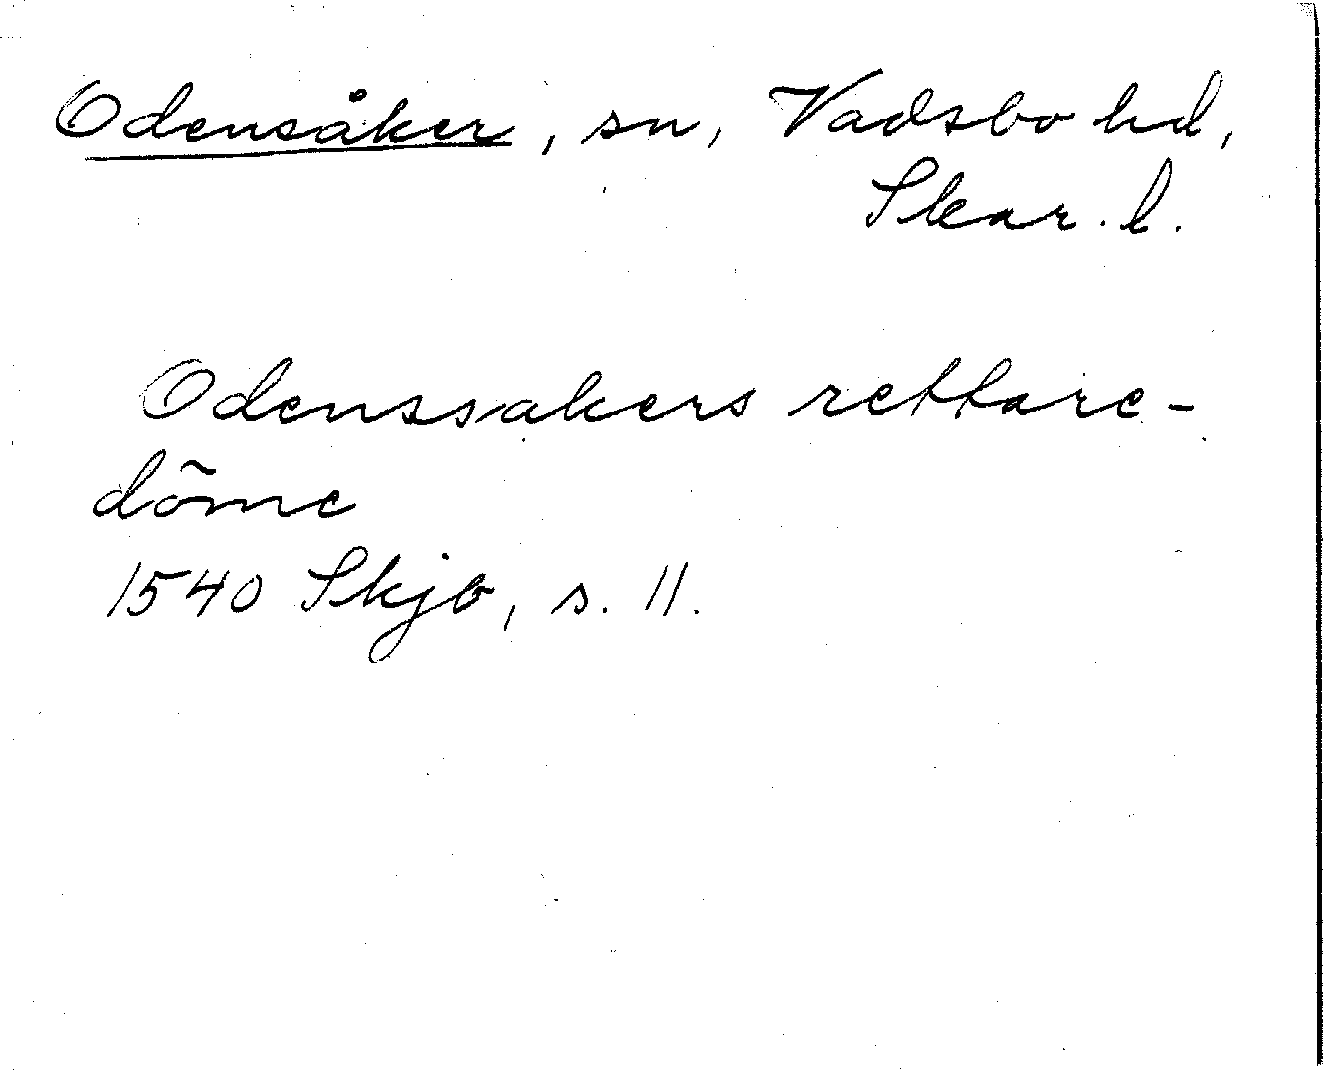 Odensåker, sn, Vadsbo hd,
Skar. l.
Odenssakers rettare-
döme
1540 Skjb, s. 11.